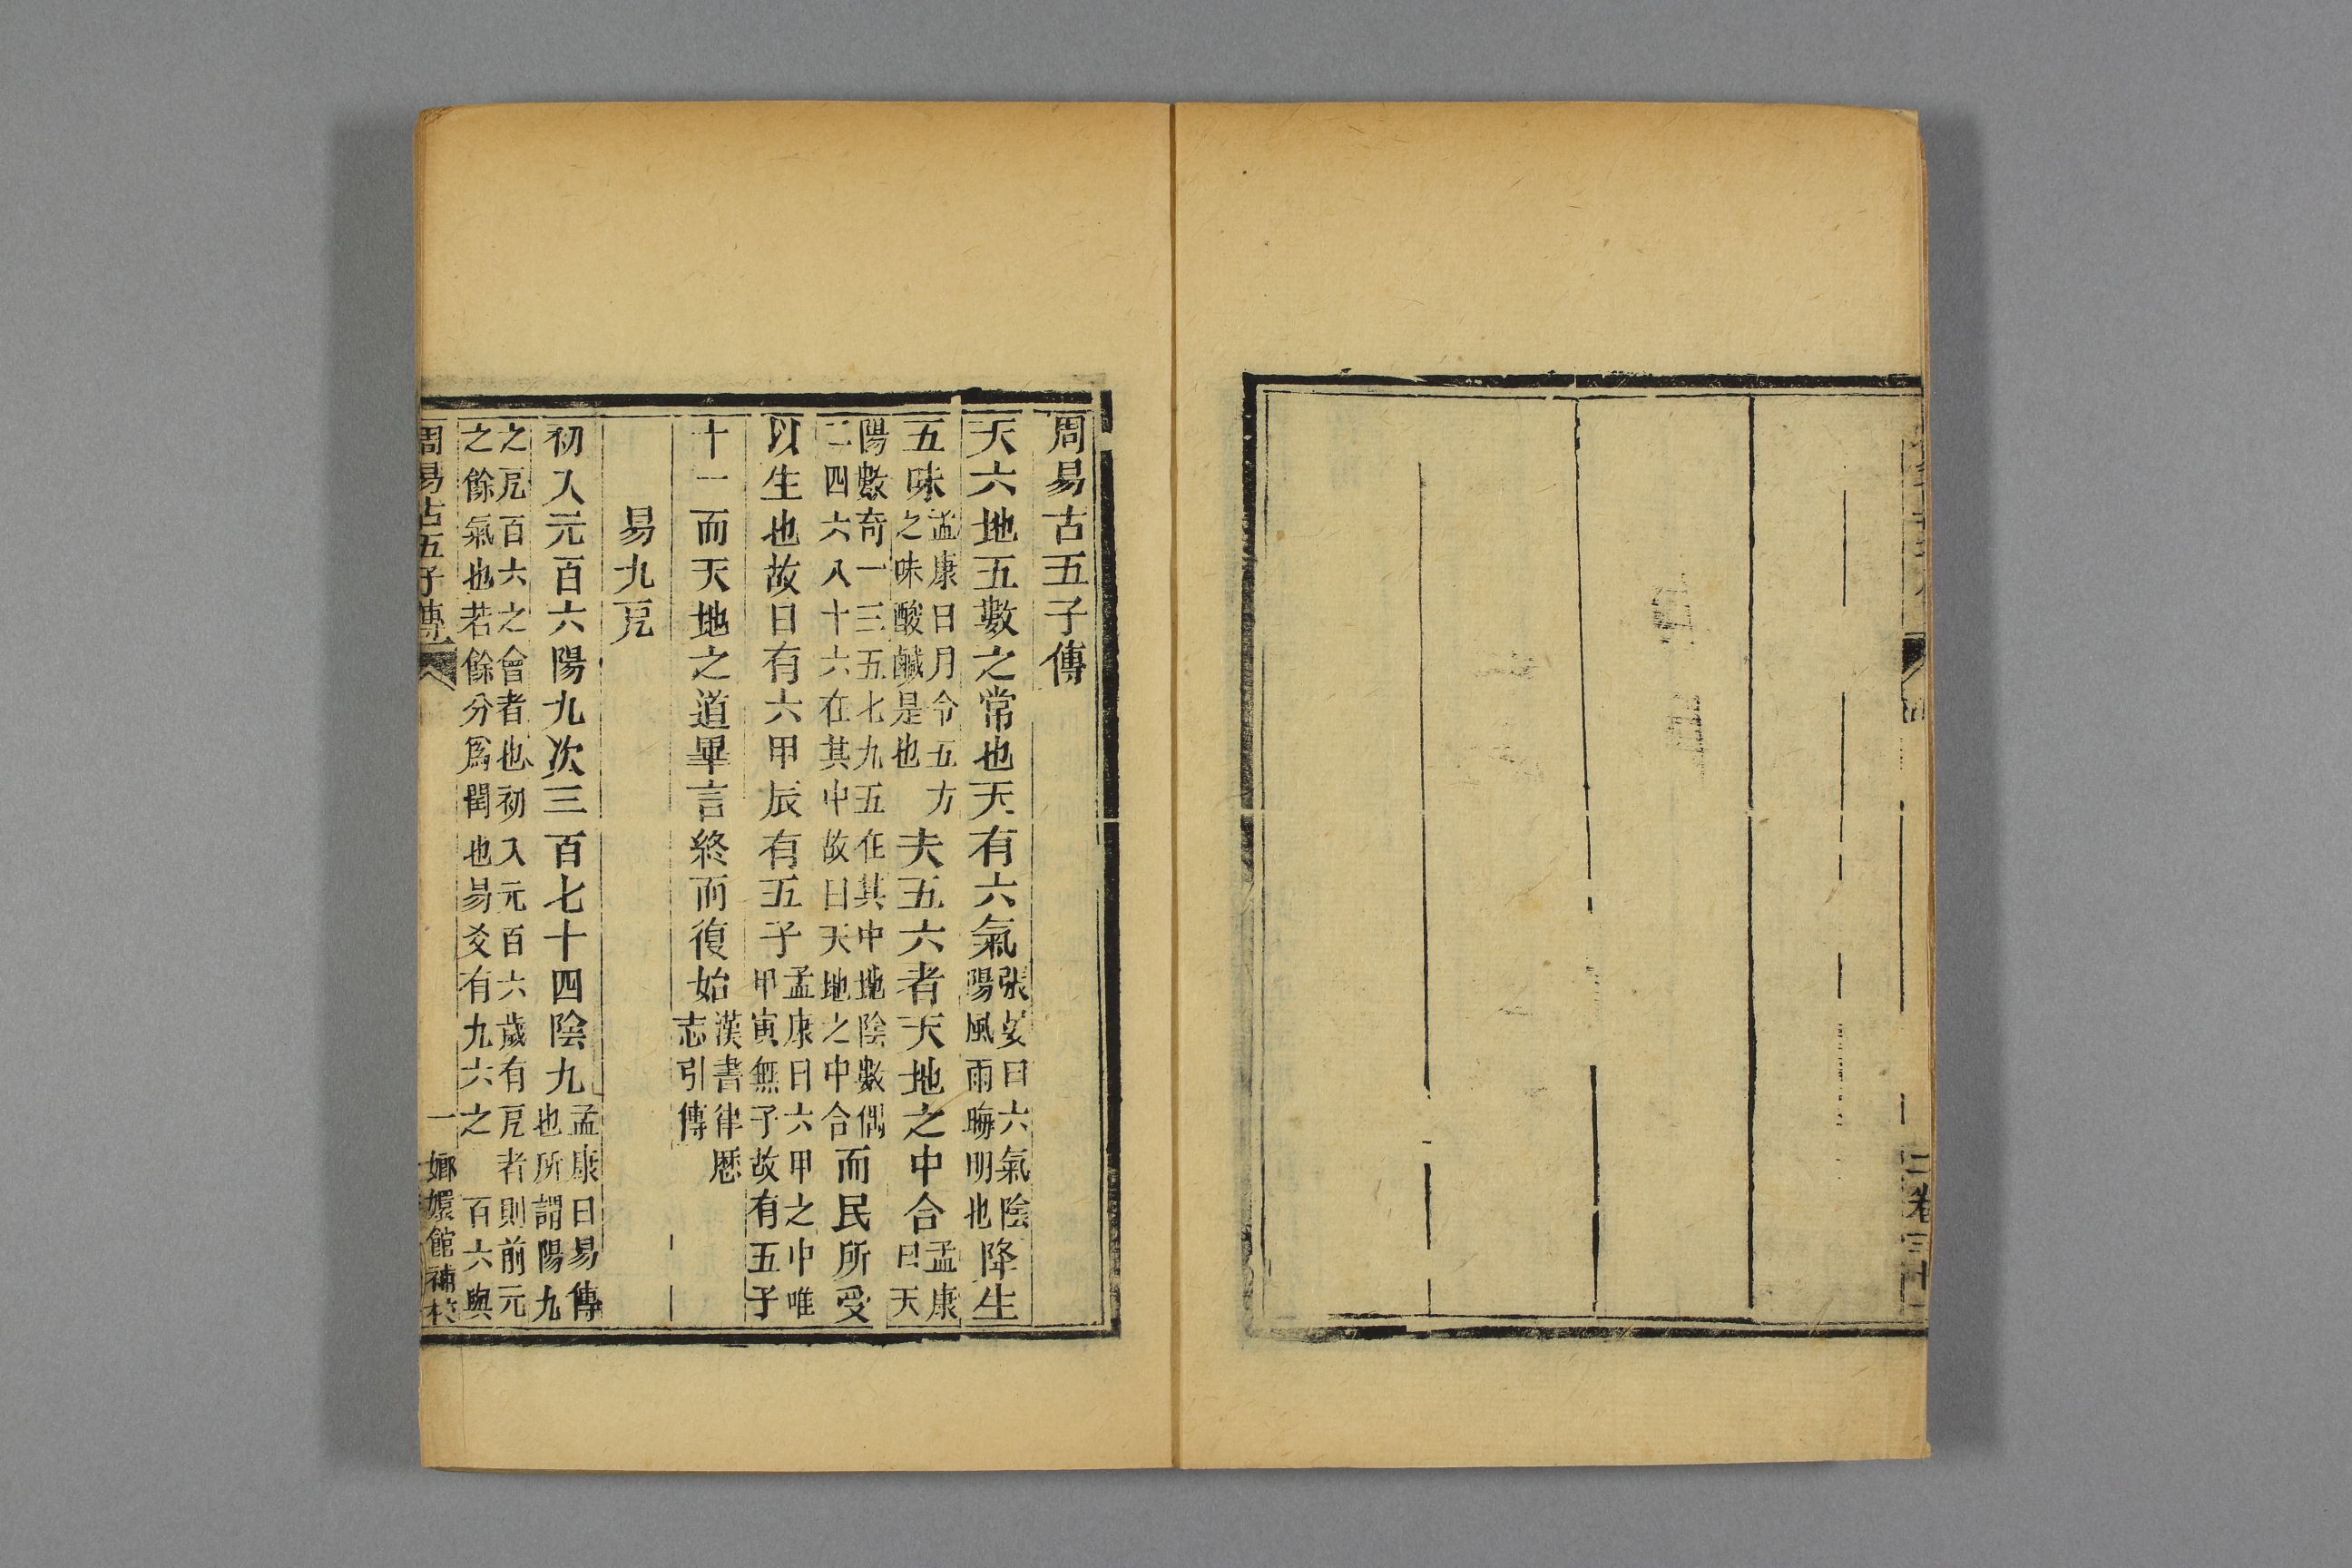 二 卷三十
周易古五子傳
天六地五數之常也天有六氣張晏曰六氣陰陽風雨晦明也降生
五味孟康曰月令五方之味酸鹹是也夫五六者天地之中合孟康曰天
陽數奇一三五七九五在其中地陰數偶二四六八十六在其中故曰天地之中合而民所受
以生也故曰有六甲辰有五子孟康曰六甲之中唯甲寅無子故有五子
十一而天地之道畢言終而復始漢書律厯志引傳
易九戹
初入元百六陽九次三百七十四陰九孟康曰易傳也所謂陽九
之戹百六之會者也初入元百六歲有戹者則前元之餘氣也若餘分爲閏也易爻有九六之百六與
周易古五子傳 一 嫏嬛館補校